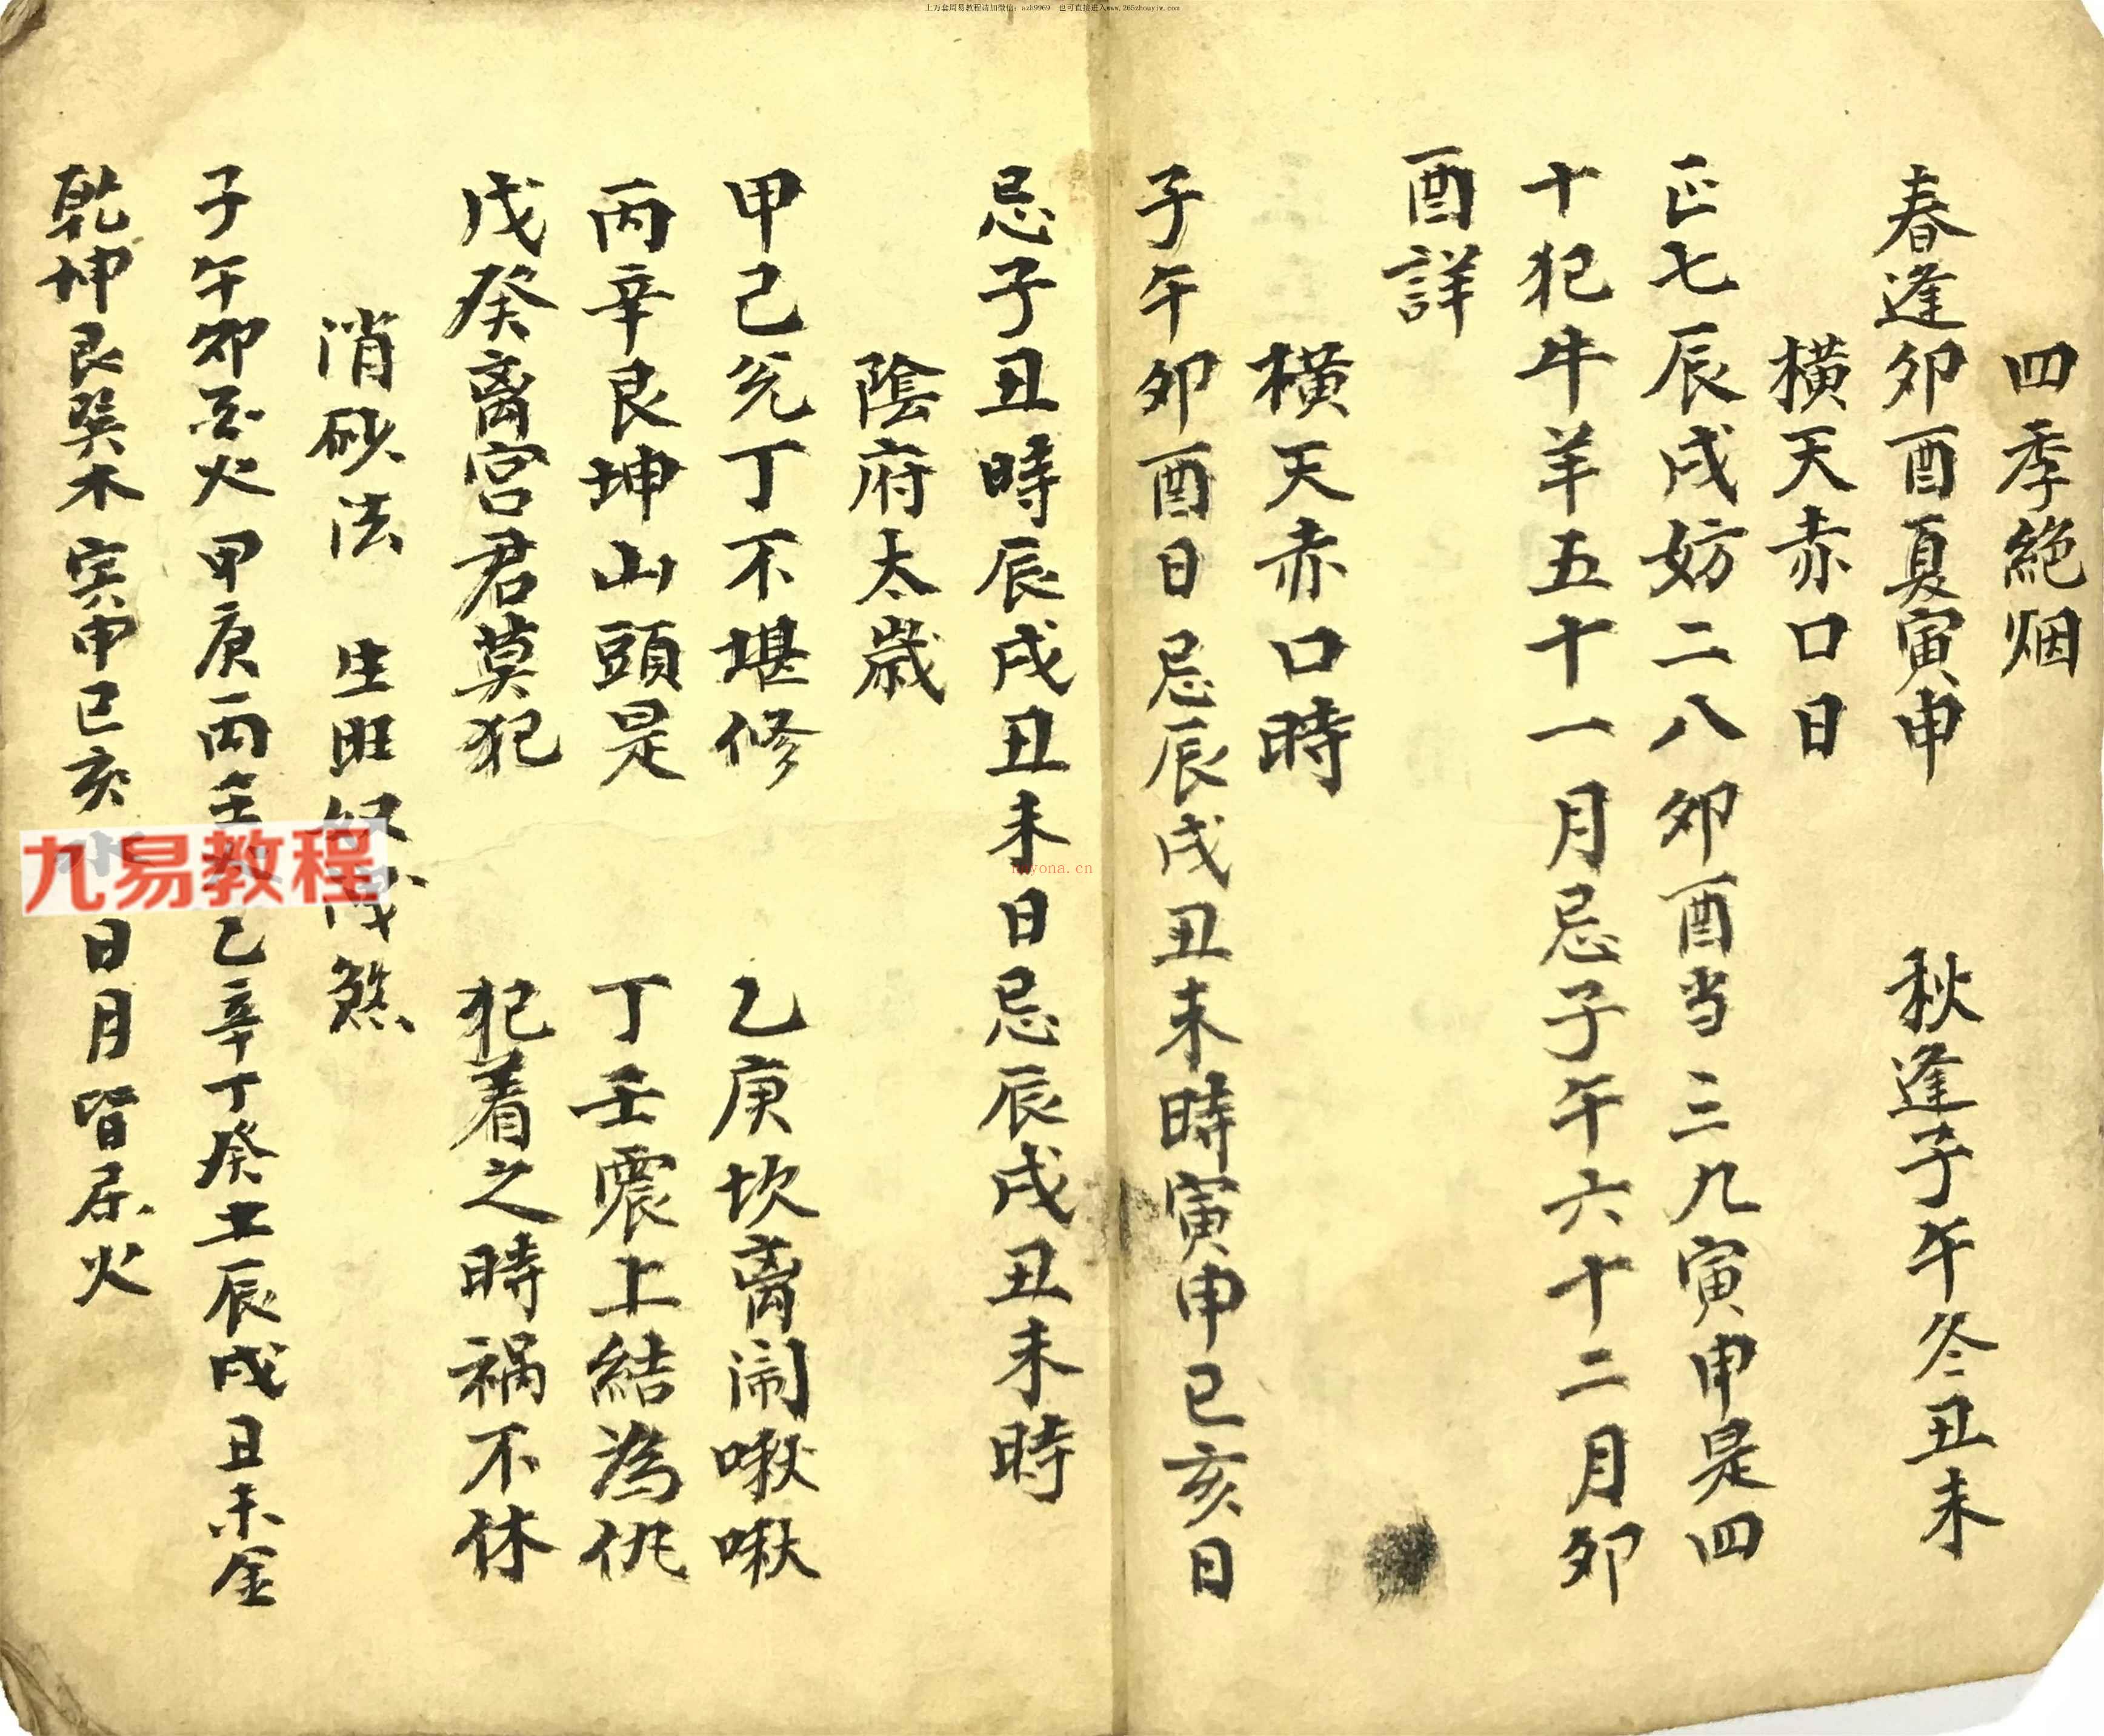 上万套周易教程请加微信：azh9969　也可直接进入www.265zhouyiw.com
四季絶烟
春逢卯酉夏寅申　秋逢子午冬丑未
橫天赤口日
正七辰戌妨二八卯酉当三九寅申是四
十犯牛羊五十一月忌子午六十二月卯
酉詳
橫天赤口時
子午卯酉日忌辰戌丑未時寅申巳亥日
忌子丑時辰戌丑未日忌辰戌丑未時
陰府太歲
甲己兑丁不堪修　乙庚坎离闹啾啾
丙辛艮坤山頭是　丁壬震上結為仇
戊癸离宫君莫犯　犯着之時祸不休
消砂法　生旺 煞
子午卯酉火甲庚丙壬 乙辛丁癸土辰戌丑未金
乾坤艮巽木寅申巳亥水日月皆属火
九易教程
nayona.cn